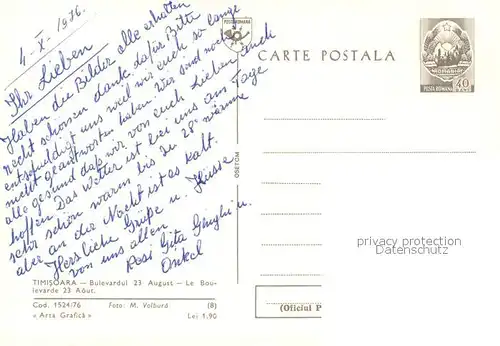 4-X-1976.
Ihr Lieben
Haben die Bilder alle erhalten
recht schönen dank dafür Bitte
entschuldigt uns weil wir euch so lange
nicht geantwortet haben Wir sind noch
alle gesund das wir von euch Lieben auch
hoffen Das Wetter ist bei uns am Tage
sehr schön warm bis zu 28° wärme
aber an die Nacht ist es kalt.
Herzliche Grüße u. Küsse
von uns allen
Resi Gita u.
Onkel
POSTA ROMANA
CARTE POSTALA
POSTA ROMANA 40
TIMIȘOARA — Bulevardul 23 August — Le Bou-
levarde 23 Août.
Cod. 1524/76 Foto: M. Volbură (8)
« Arta Grafică » Lei 1,90
privacy protection
Datenschutz
(Oficiul P